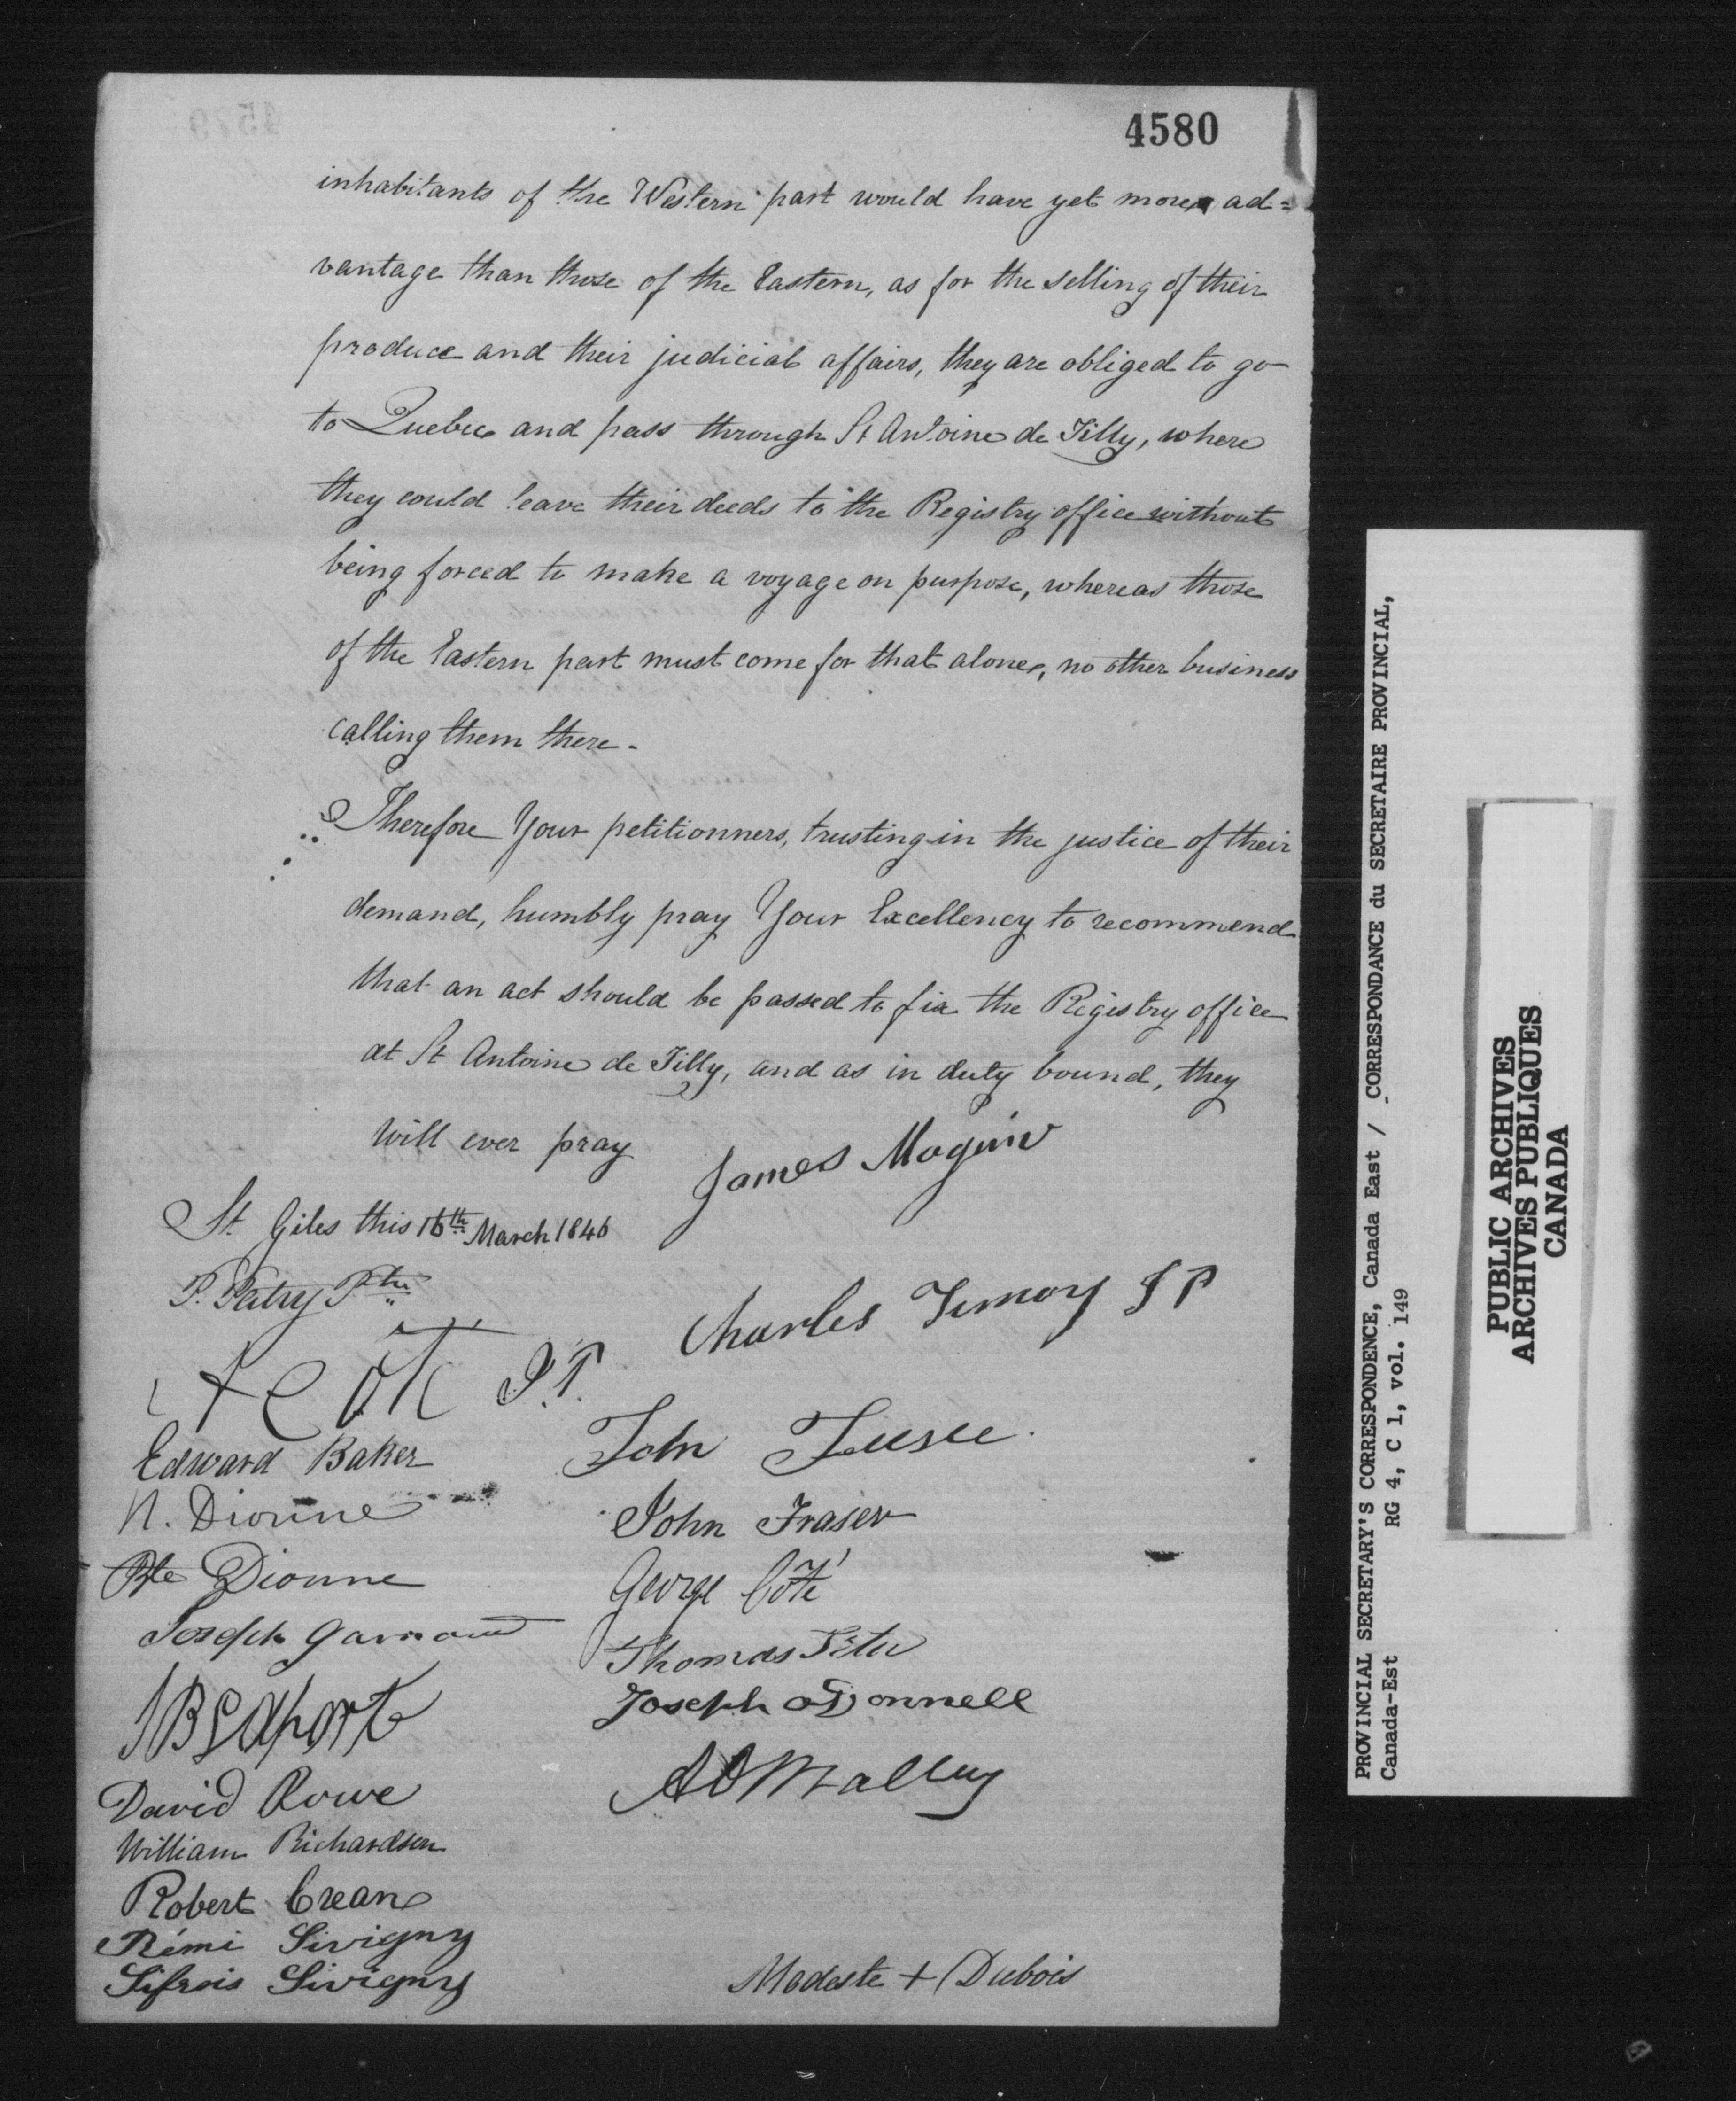 4580
inhabitants of the Western part would have yet more ad=
vantage than those of the Eastern, as for the selling of their
produce and their judicial affairs, they are obliged to go
to Quebec and pass through St Antoine de Tilly, where
they could leave their deeds to the Registry office without
being forced to make a voyage on purpose, whereas those
of the Eastern part must come for that alone, no other business
calling them there.
Therefore Your petitionners, trusting in the justice of their
demand, humbly pray Your Excellency to recommend
that an act should be passed to fix the Registry office
at St Antoine de Tilly, and as in duty bound, they
will ever pray
James
St. Giles this 16th March 1846
P. Patry Ptre
Charles JP
Côté J.P.
Edward Baker
John
N. Dionne
John Fraser
Bte Dionne
George Côté
Joseph
Thomas
Joseph oDonnell
David Rowe
A OMalley
William Richardson
Robert Crean
Rémi Sivigny
Sifrois Sivigny
Modeste + Dubois
PROVINCIAL SECRETARY'S CORRESPONDENCE, Canada East / CORRESPONDANCE du SECRETAIRE PROVINCIAL,
Canada-Est RG 4, C 1, vol. 149
PUBLIC ARCHIVES
ARCHIVES PUBLIQUES
CANADA